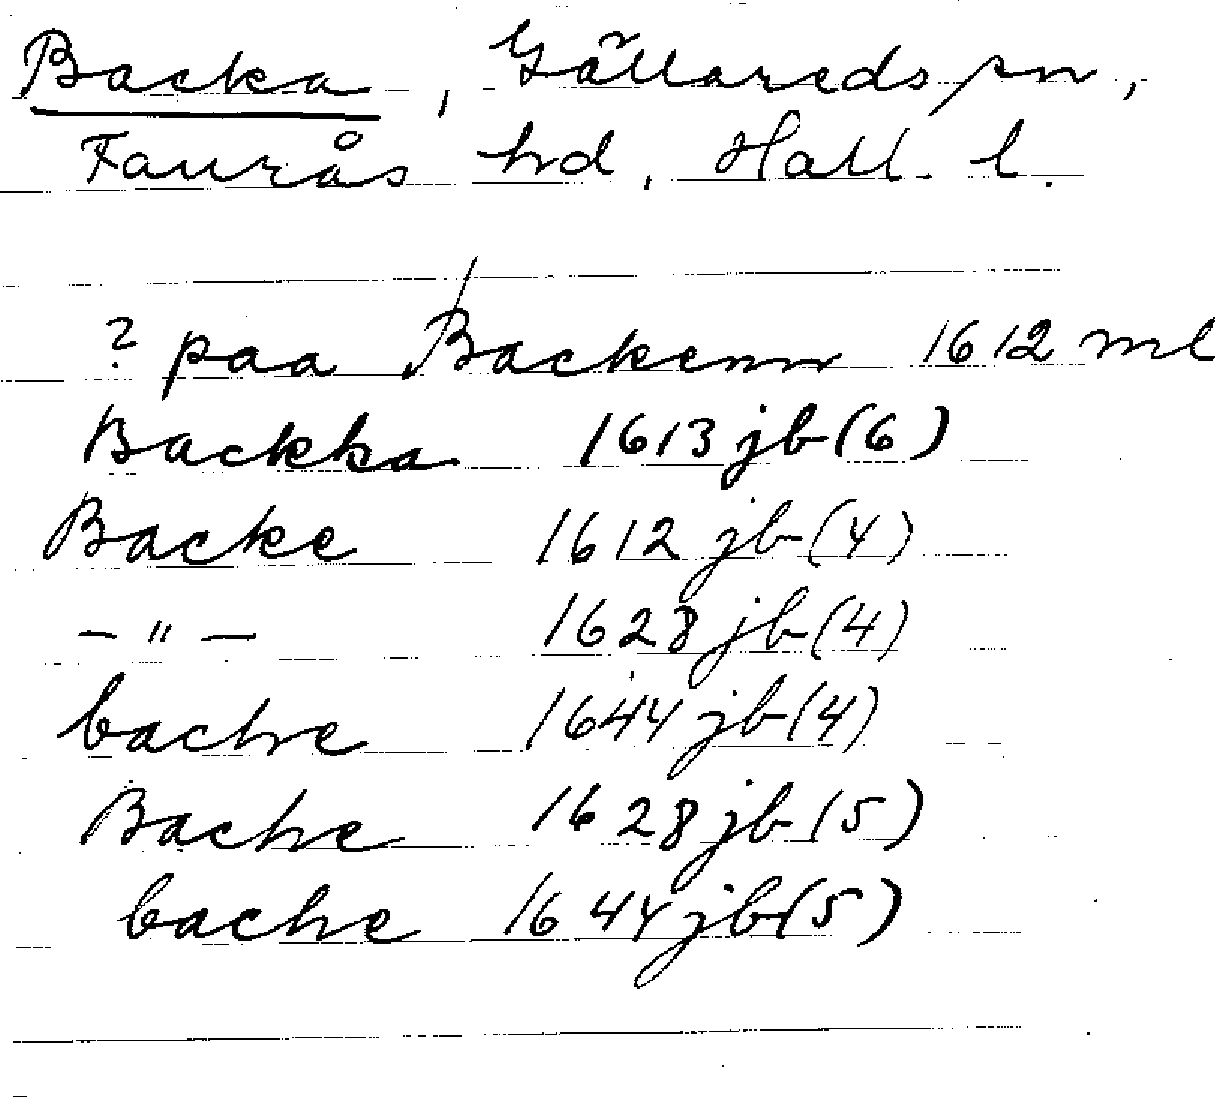 Backa, Gällareds sn,
Faurås hd, Hall. l.
? paa Backenn 1612 ml
Backka 1613 jb (6)
Backe 1612 jb (4)
-"- 1628 jb (4)
bache 1644 jb (4)
Bache 1628 jb (5)
bache 1644 jb (5)